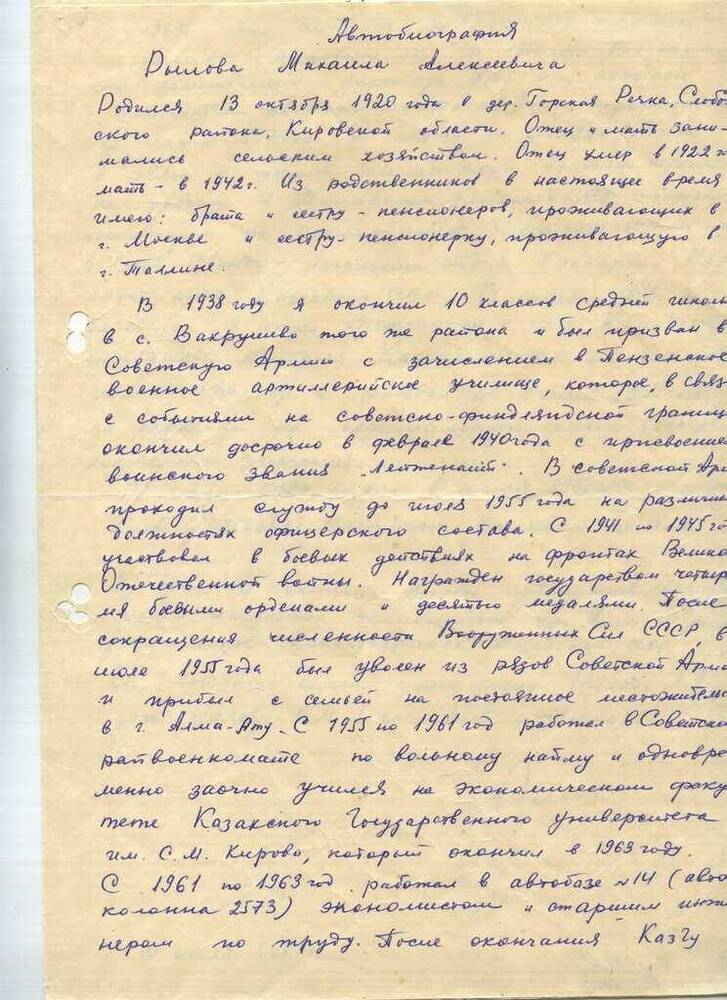 Автобиография
Рылова Михаила Алексеевича
Родился 13 октября 1920 года в дер. Горская Речка, Слобо
ского района, Кировской области. Отец и мать зани-
мались сельским хозяйством. Отец умер в 1922 г
мать - в 1942 г. Из родственников в настоящее время
имею: брата и сестру - пенсионеров, проживающих в
г. Москве и сестру - пенсионерку, проживающую в
г. Таллине.
В 1938 году я окончил 10 классов средней школ
в с. Вахрушево того же района и был призван в
Советскую Армию с зачислением в Пензенское
военное артиллерийское училище, которое, в связ
с событиями на советско-финляндской границ
окончил досрочно в феврале 1940 года с присвоение
воинского звания "Лейтенант". В советской Ар
проходил службу до июля 1955 года на различн
должностях офицерского состава. С 1941 по 1945 го
участвовал в боевых действиях на фронтах Велико
Отечественной войны. Награжден государством четыр
мя боевыми орденами и десятью медалями. После
сокращения численности Вооруженных Сил СССР, в
июле 1955 года был уволен из рядов Советской Арми
и прибыл с семьей на постоянное местожительс
в г. Алма-Ату. С 1955 по 1961 год работал в Советско
райвоенкомате по вольному найму и одновре
менно заочно учился на экономическом факу
тете Казахского Государственного университета
им. С.М. Кирова, который окончил в 1963 году.
С 1961 по 1963 год работал в автобазе №14 (авто
колонна 2573) экономистом и старшим инже
нером по труду. После окончания КазГу